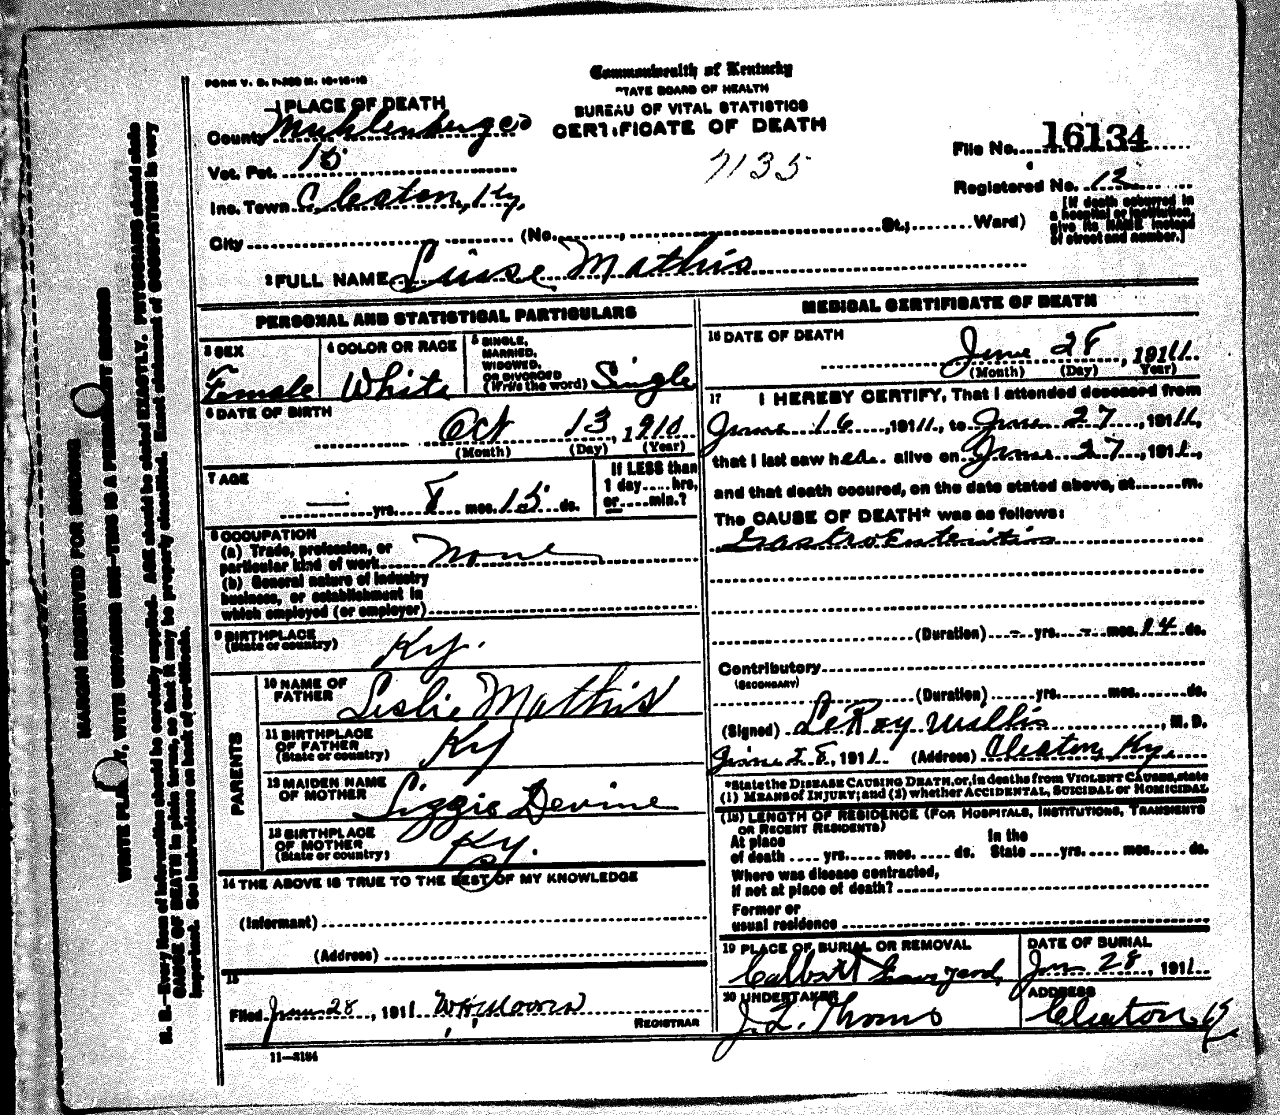 FORM V. S. 1-200 M. 10-10-10
Commonwealth of Kentucky
STATE BOARD OF HEALTH
BUREAU OF VITAL STATISTICS
CERTIFICATE OF DEATH
7135
1 PLACE OF DEATH
County Muhlenberg co
Vot. Pct. 15
Inc. Town Cleaton, Ky.
City (No. , St.; Ward)
File No. 16134
Registered No. 12
[If death occurred in a hospital or institution, give its NAME instead of street and number.]
2 FULL NAME Mathis
PERSONAL AND STATISTICAL PARTICULARS
3 SEX
Female
4 COLOR OR RACE
White
5 SINGLE, MARRIED, WIDOWED, OR DIVORCED (Write the word) Single
6 DATE OF BIRTH
Oct 13, 1910
(Month) (Day) (Year)
7 AGE
— yrs. 8 mos. 15 ds.
If LESS than 1 day .... hrs, or .... min.?
8 OCCUPATION
(a) Trade, profession, or particular kind of work None
(b) General nature of industry business, or establishment in which employed (or employer)
9 BIRTHPLACE
(State or country) Ky.
PARENTS
10 NAME OF FATHER Leslie Mathis
11 BIRTHPLACE OF FATHER (State or country) Ky
12 MAIDEN NAME OF MOTHER Lizzie Devine
13 BIRTHPLACE OF MOTHER (State or country) Ky.
14 THE ABOVE IS TRUE TO THE BEST OF MY KNOWLEDGE
(Informant)
(Address)
15
Filed June 28, 1911 W H Moore
REGISTRAR
11—3184
MEDICAL CERTIFICATE OF DEATH
16 DATE OF DEATH
June 28, 1911
(Month) (Day) (Year)
17 I HEREBY CERTIFY, That I attended deceased from
June 16, 1911, to June 27, 1911,
that I last saw her alive on June 27, 1911,
and that death occured, on the date stated above, at ..... m.
The CAUSE OF DEATH* was as follows:
Gastro Enteritis
(Duration) - yrs. - mos. 14 ds.
Contributory
(SECONDARY)
(Duration) yrs. mos. ds.
(Signed) LeRoy Willis, M. D.
June 28, 1911 (Address) Cleaton, Ky.
*State the DISEASE CAUSING DEATH, or, in deaths from VIOLENT CAUSES, state
(1) MEANS of INJURY; and (2) whether ACCIDENTAL, SUICIDAL or HOMICIDAL
(18) LENGTH OF RESIDENCE (FOR HOSPITALS, INSTITUTIONS, TRANSIENTS OR RECENT RESIDENTS)
At place of death .... yrs. .... mos. .... ds. In the State .... yrs. .... mos. .... ds.
Where was disease contracted, if not at place of death?
Former or usual residence
19 PLACE OF BURIAL OR REMOVAL
Graveyard
DATE OF BURIAL
June 28, 1911
20 UNDERTAKER
J. L. Thomas
ADDRESS
Cleaton Ky
MARGIN RESERVED FOR BINDING
WRITE PLAINLY, WITH UNFADING INK—THIS IS A PERMANENT RECORD
N. B.—Every item of information should be carefully supplied. AGE should be stated EXACTLY. PHYSICIANS should state
CAUSE OF DEATH in plain terms, so that it may be properly classified. Exact statement of OCCUPATION is very
important. See instructions on back of certificate.